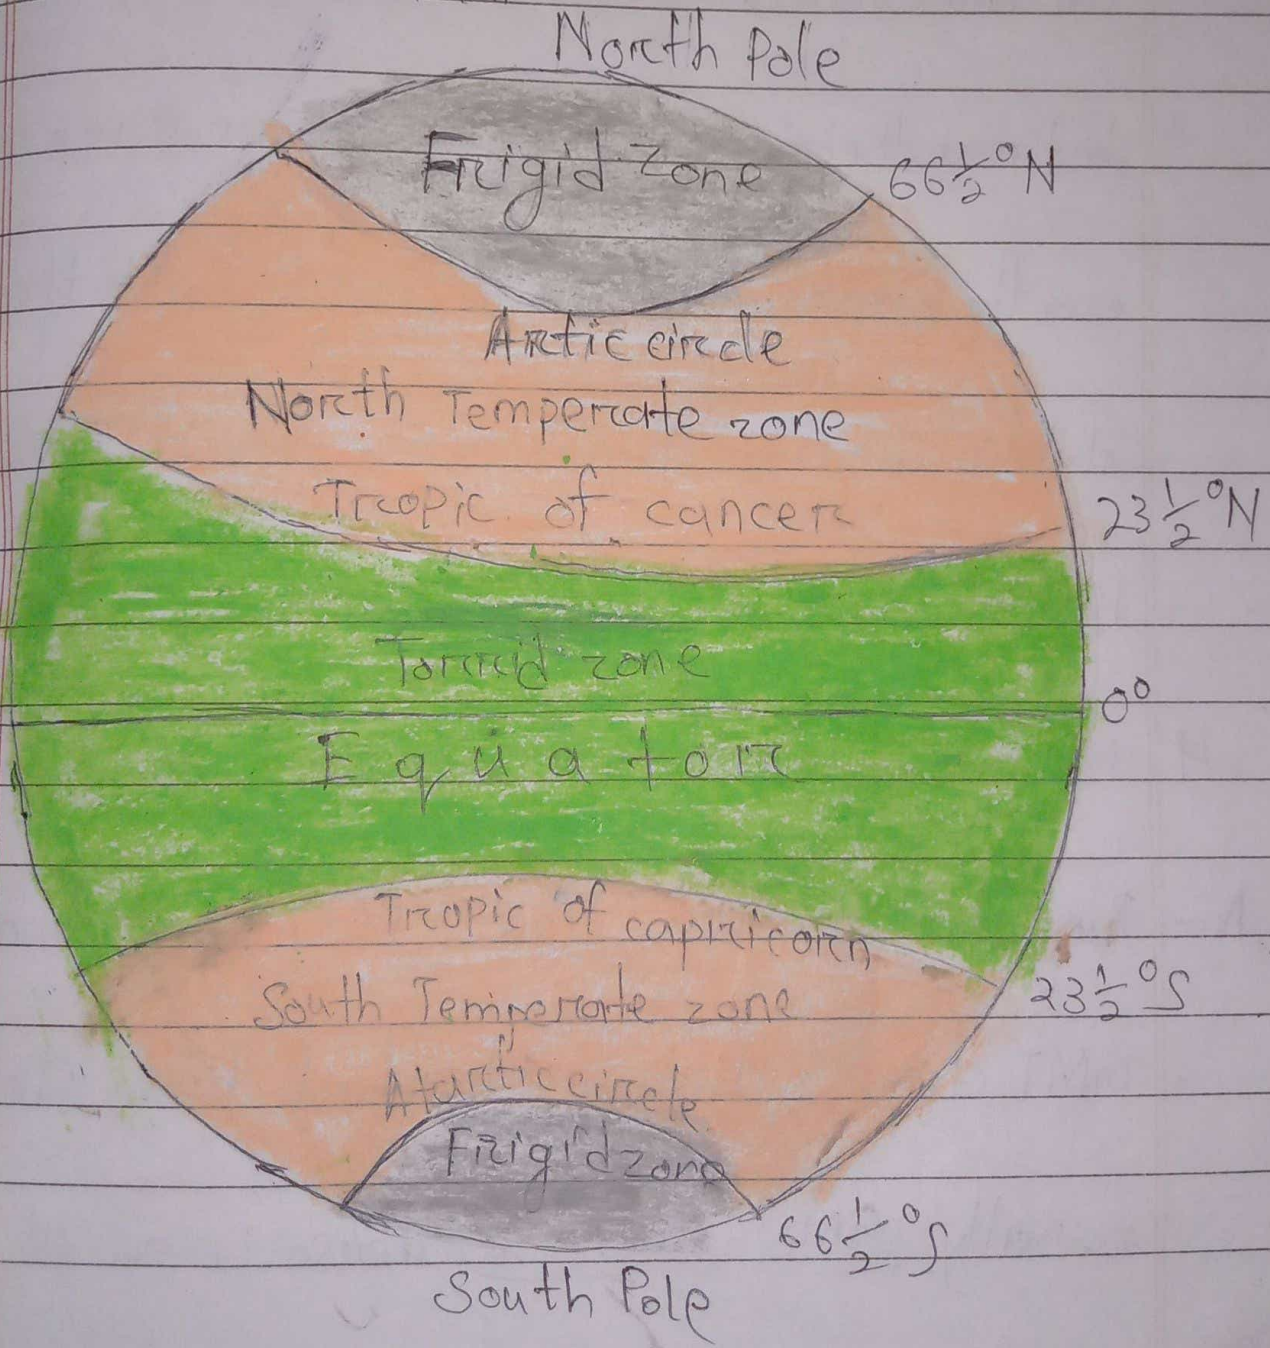 North Pole
Frigid Zone
66 1/2° N
Arctic circle
North Temperate zone
Tropic of cancer
23 1/2° N
Torrid zone
0°
Equator
Tropic of capricorn
South Temperate zone
23 1/2° S
Atarctic circle
Frigid zone
66 1/2° S
South Pole